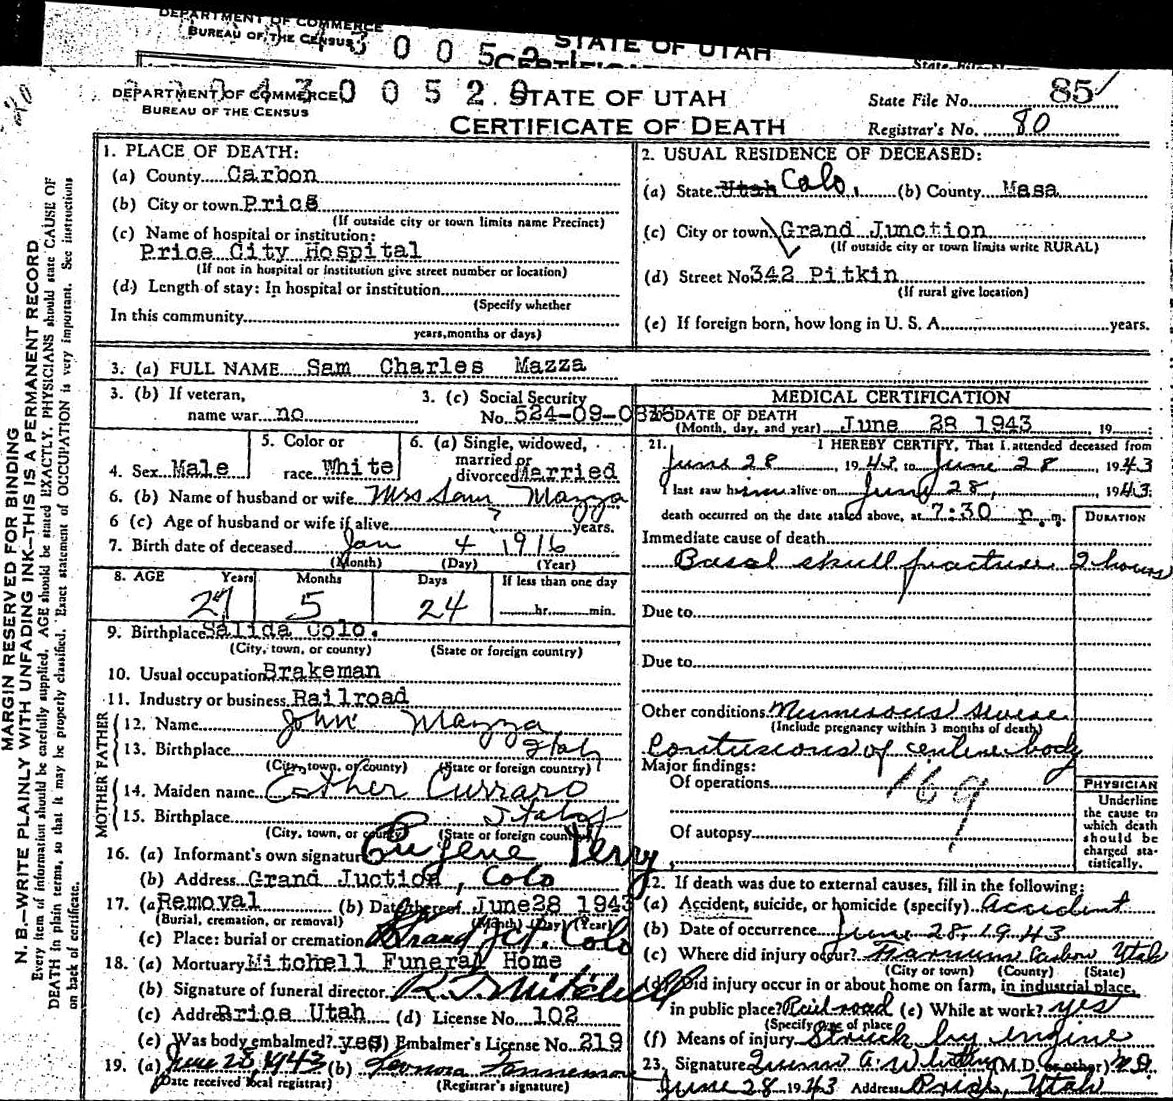 DEPARTMENT OF COMMERCE
BUREAU OF THE CENSUS
STATE OF UTAH
DEPARTMENT OF COMMERCE
BUREAU OF THE CENSUS
STATE OF UTAH
CERTIFICATE OF DEATH
State File No. 85
Registrar's No. 80
MARGIN RESERVED FOR BINDING
N. B.—WRITE PLAINLY WITH UNFADING INK—THIS IS A PERMANENT RECORD
Every item of information should be carefully supplied. AGE should be stated EXACTLY. PHYSICIANS should state CAUSE OF
DEATH in plain terms, so that it may be properly classified. Exact statement of OCCUPATION is very important. See instructions
on back of certificate.
1. PLACE OF DEATH:
(a) County Carbon
(b) City or town Price
(If outside city or town limits name Precinct)
(c) Name of hospital or institution:
Price City Hospital
(If not in hospital or institution give street number or location)
(d) Length of stay: In hospital or institution
(Specify whether
In this community
years, months or days)
2. USUAL RESIDENCE OF DECEASED:
(a) State Utah Colo. (b) County Masa
(c) City or town Grand Junction
(If outside city or town limits write RURAL)
(d) Street No 342 Pitkin
(If rural give location)
(e) If foreign born, how long in U. S. A. years.
3. (a) FULL NAME Sam Charles Mazza
3. (b) If veteran,
name war no
3. (c) Social Security
No. 524-09-0815
4. Sex Male
5. Color or
race White
6. (a) Single, widowed,
married or
divorced Married
6. (b) Name of husband or wife Mrs Sam Mazza
6 (c) Age of husband or wife if alive ? years.
7. Birth date of deceased Jan 4 1916
(Month) (Day) (Year)
8. AGE Years Months Days If less than one day
27 5 24 hr. min.
9. Birthplace Salida Colo.
(City, town, or county) (State or foreign country)
10. Usual occupation Brakeman
11. Industry or business Railroad
FATHER
12. Name John Mazza
13. Birthplace Italy
(City, town, or county) (State or foreign country)
MOTHER
14. Maiden name Esther Curraro
15. Birthplace Italy
(City, town, or county) (State or foreign country)
16. (a) Informant's own signature Eugene Perry
(b) Address Grand Juction, Colo
17. (a) Removal (b) Date thereof June 28 1943
(Burial, cremation, or removal) (Month) (Day) (Year)
(c) Place: burial or cremation Grand Jct. Colo
18. (a) Mortuary Mitchell Funeral Home
(b) Signature of funeral director R T Mitchell
(c) Addr Price Utah (d) License No. 102
(e) Was body embalmed? yes (f) Embalmer's License No. 219
19. (a) June 28, 1943 (b) Leonora
(Date received local registrar) (Registrar's signature)
MEDICAL CERTIFICATION
DATE OF DEATH
(Month, day, and year) June 28 1943 19
21. I HEREBY CERTIFY, That I attended deceased from
June 28, 1943 to June 28, 1943
I last saw him alive on June 28, 1943
death occurred on the date stated above, at 7:30 p. m.
DURATION
Immediate cause of death
Basal skull fracture 2 hours
Due to
Due to
Other conditions Numerous severe
(Include pregnancy within 3 months of death)
contusions of entire body
Major findings:
Of operations 169
Of autopsy
PHYSICIAN
Underline
the cause to
which death
should be
charged sta-
tistically.
22. If death was due to external causes, fill in the following:
(a) Accident, suicide, or homicide (specify) Accident
(b) Date of occurrence June 28, 1943
(c) Where did injury occur? Carbon Utah
(City or town) (County) (State)
(d) Did injury occur in or about home on farm, in industrial place,
in public place? Railroad (e) While at work? yes
(Specify type of place)
(f) Means of injury Struck by engine
23. Signature (M.D. or other) M.D.
June 28 1943 Address Price, Utah